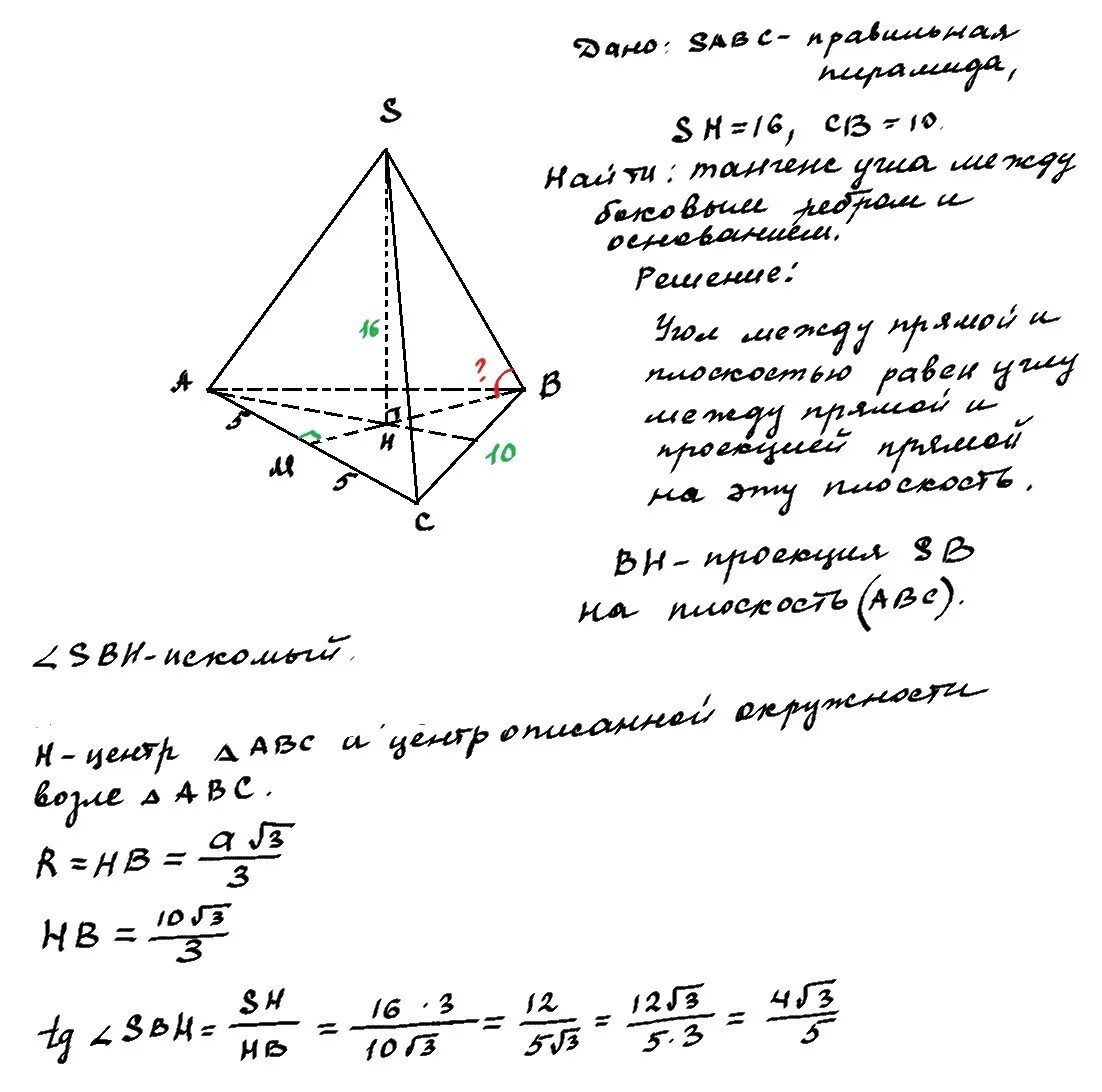 Дано: SABC - правильная
пирамида,
SH = 16, CB = 10.
Найти: тангенс угла между
боковым ребром и
основанием.
Решение:
Угол между прямой и
плоскостью равен углу
между прямой и
проекцией прямой
на эту плоскость.
BH - проекция SB
на плоскость (ABC).
S
16
?
A
B
5
H
M
10
5
C
∠SBH - искомый.
H - центр △ABC и центр описанной окружности
возле △ABC.
R = HB = a√3/3
HB = 10√3/3
tg ∠SBH = SH/HB = 16·3/10√3 = 12/5√3 = 12√3/5·3 = 4√3/5